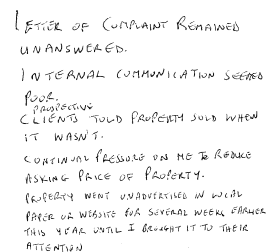 LETTER OF COMPLAINT REMAINED
UNANSWERED.
INTERNAL COMMUNICATION SEEMED
POOR.
PROSPECTIVE
CLIENTS TOLD PROPERTY SOLD WHEN
IT WASN'T.
CONTINUAL PRESSURE ON ME TO REDUCE
ASKING PRICE OF PROPERTY.
PROPERTY WENT UNADVERTISED IN LOCAL
PAPER OR WEBSITE FOR SEVERAL WEEKS EARLIER
THIS YEAR UNTIL I BROUGHT IT TO THEIR
ATTENTION